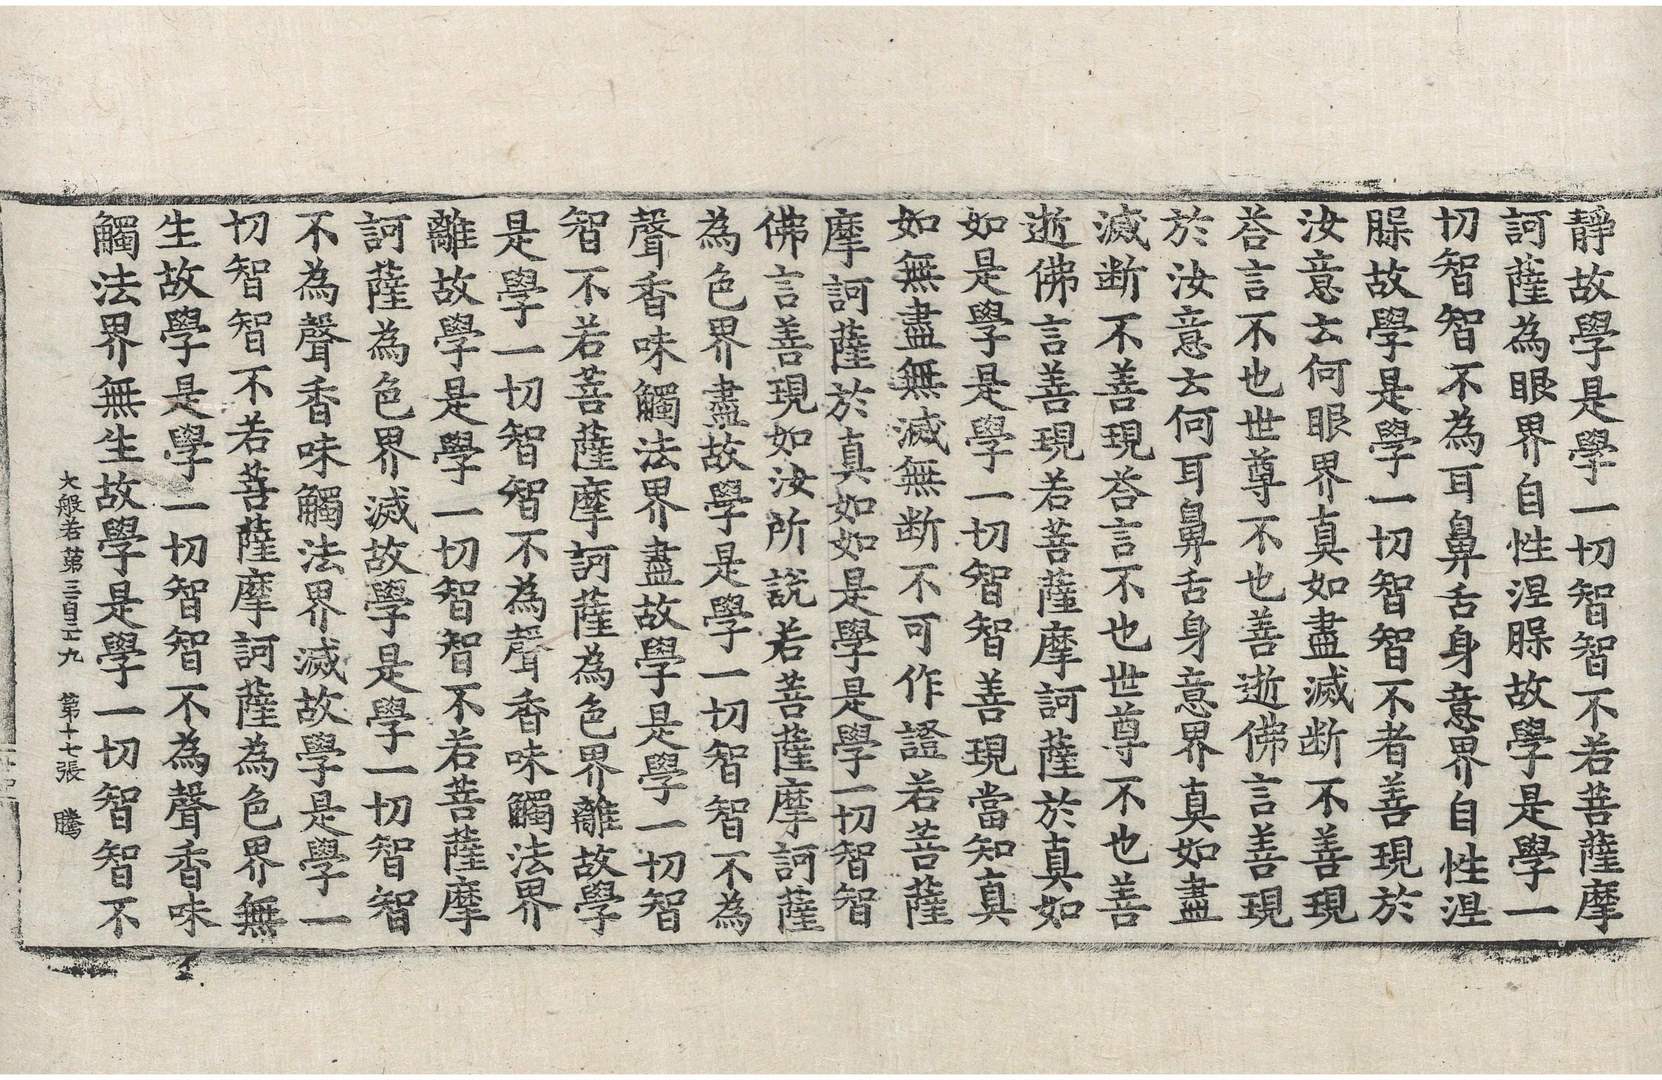 靜故學是學一切智智不若菩薩摩
訶薩為眼界自性涅槃故學是學一
切智智不為耳鼻舌身意界自性涅
槃故學是學一切智智不者善現於
汝意云何眼界真如盡滅斷不善現
荅言不也世尊不也善逝佛言善現
於汝意云何耳鼻舌身意界真如盡
滅斷不善現荅言不也世尊不也善
逝佛言善現若菩薩摩訶薩於真如
如是學是學一切智智善現當知真
如無盡無滅無斷不可作證若菩薩
摩訶薩於真如如是學是學一切智智
佛言善現如汝所說若菩薩摩訶薩
為色界盡故學是學一切智智不為
聲香味觸法界盡故學是學一切智
智不若菩薩摩訶薩為色界離故學
是學一切智智不為聲香味觸法界
離故學是學一切智智不若菩薩摩
訶薩為色界滅故學是學一切智智
不為聲香味觸法界滅故學是學一
切智智不若菩薩摩訶薩為色界無
生故學是學一切智智不為聲香味
觸法界無生故學是學一切智智不
大般若第三百三十九 第十七張 騰